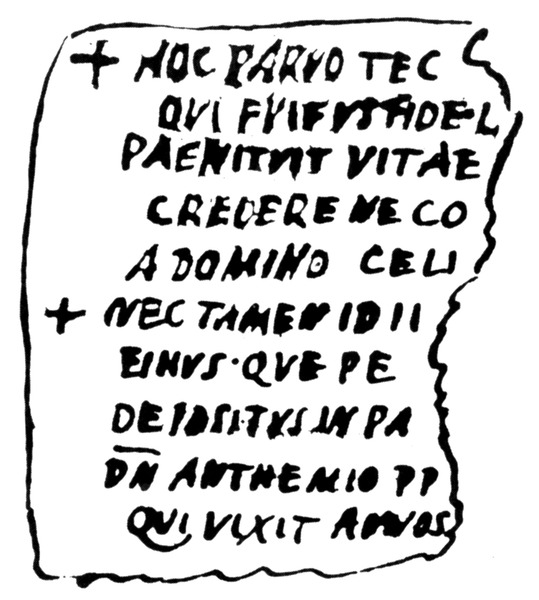 + HOC PARVO TEC
QVI FVIT IVSTA FIDE L
PAENITVIT VITAE
CREDERE NE CO
A DOMINO CELI
+ NEC TAMEN ID II
EINVS · QVE PE
DEPOSITVS IN PA
DN ANTHEMIO PP
QVI VIXIT ANNOS